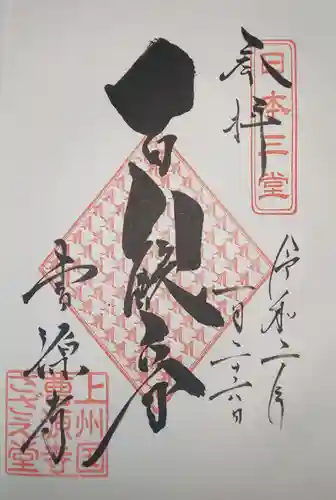 奉拝
日本三堂
令和二年
一月二十六日
百体観音
曹源寺
上州国
曹源寺
さざえ堂